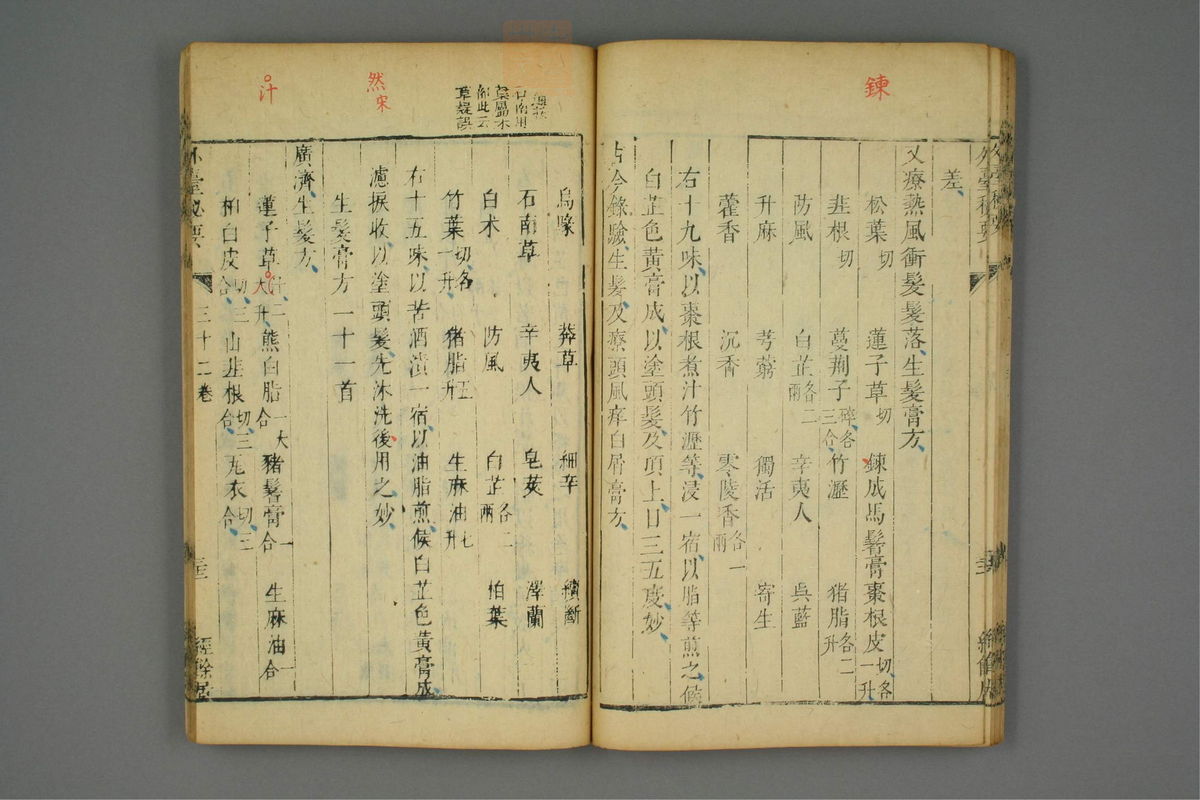 鍊
差
又療熱風衝髮髮落生髮膏方
松葉切 蓮子草切 鍊成馬鬐膏棗根皮切各一升
韭根切 蔓荆子碎各三合 竹瀝 猪脂各二升
防風 白芷各二兩 辛夷人 吳藍
升麻 芎藭 獨活 寄生
藿香 沉香 零陵香各一兩
右十九味以棗根煮汁竹瀝等浸一宿以脂等煎之候
白芷色黃膏成以塗頭髮及頂上日三五度妙
古今錄驗生髮及療頭風痒白屑膏方
草疑誤
然宋
汁
烏喙 莽草 細辛 續斷
石南草 辛夷人 皂莢 澤蘭
白术 防風 白芷各二兩 柏葉
竹葉切各一升 猪脂五升 生麻油七升
右十五味以苦酒漬一宿以油脂煎候白芷色黃膏成
濾捩收以塗頭髮先沐洗後用之妙
生髮膏方一十一首
廣濟生髮方
蓮子草汁二大升 熊白脂一大合 猪鬐膏一合 生麻油一合
柏白皮切三合 山韭根切三合 瓦衣切三合
外臺秘要 三十二卷 經餘居